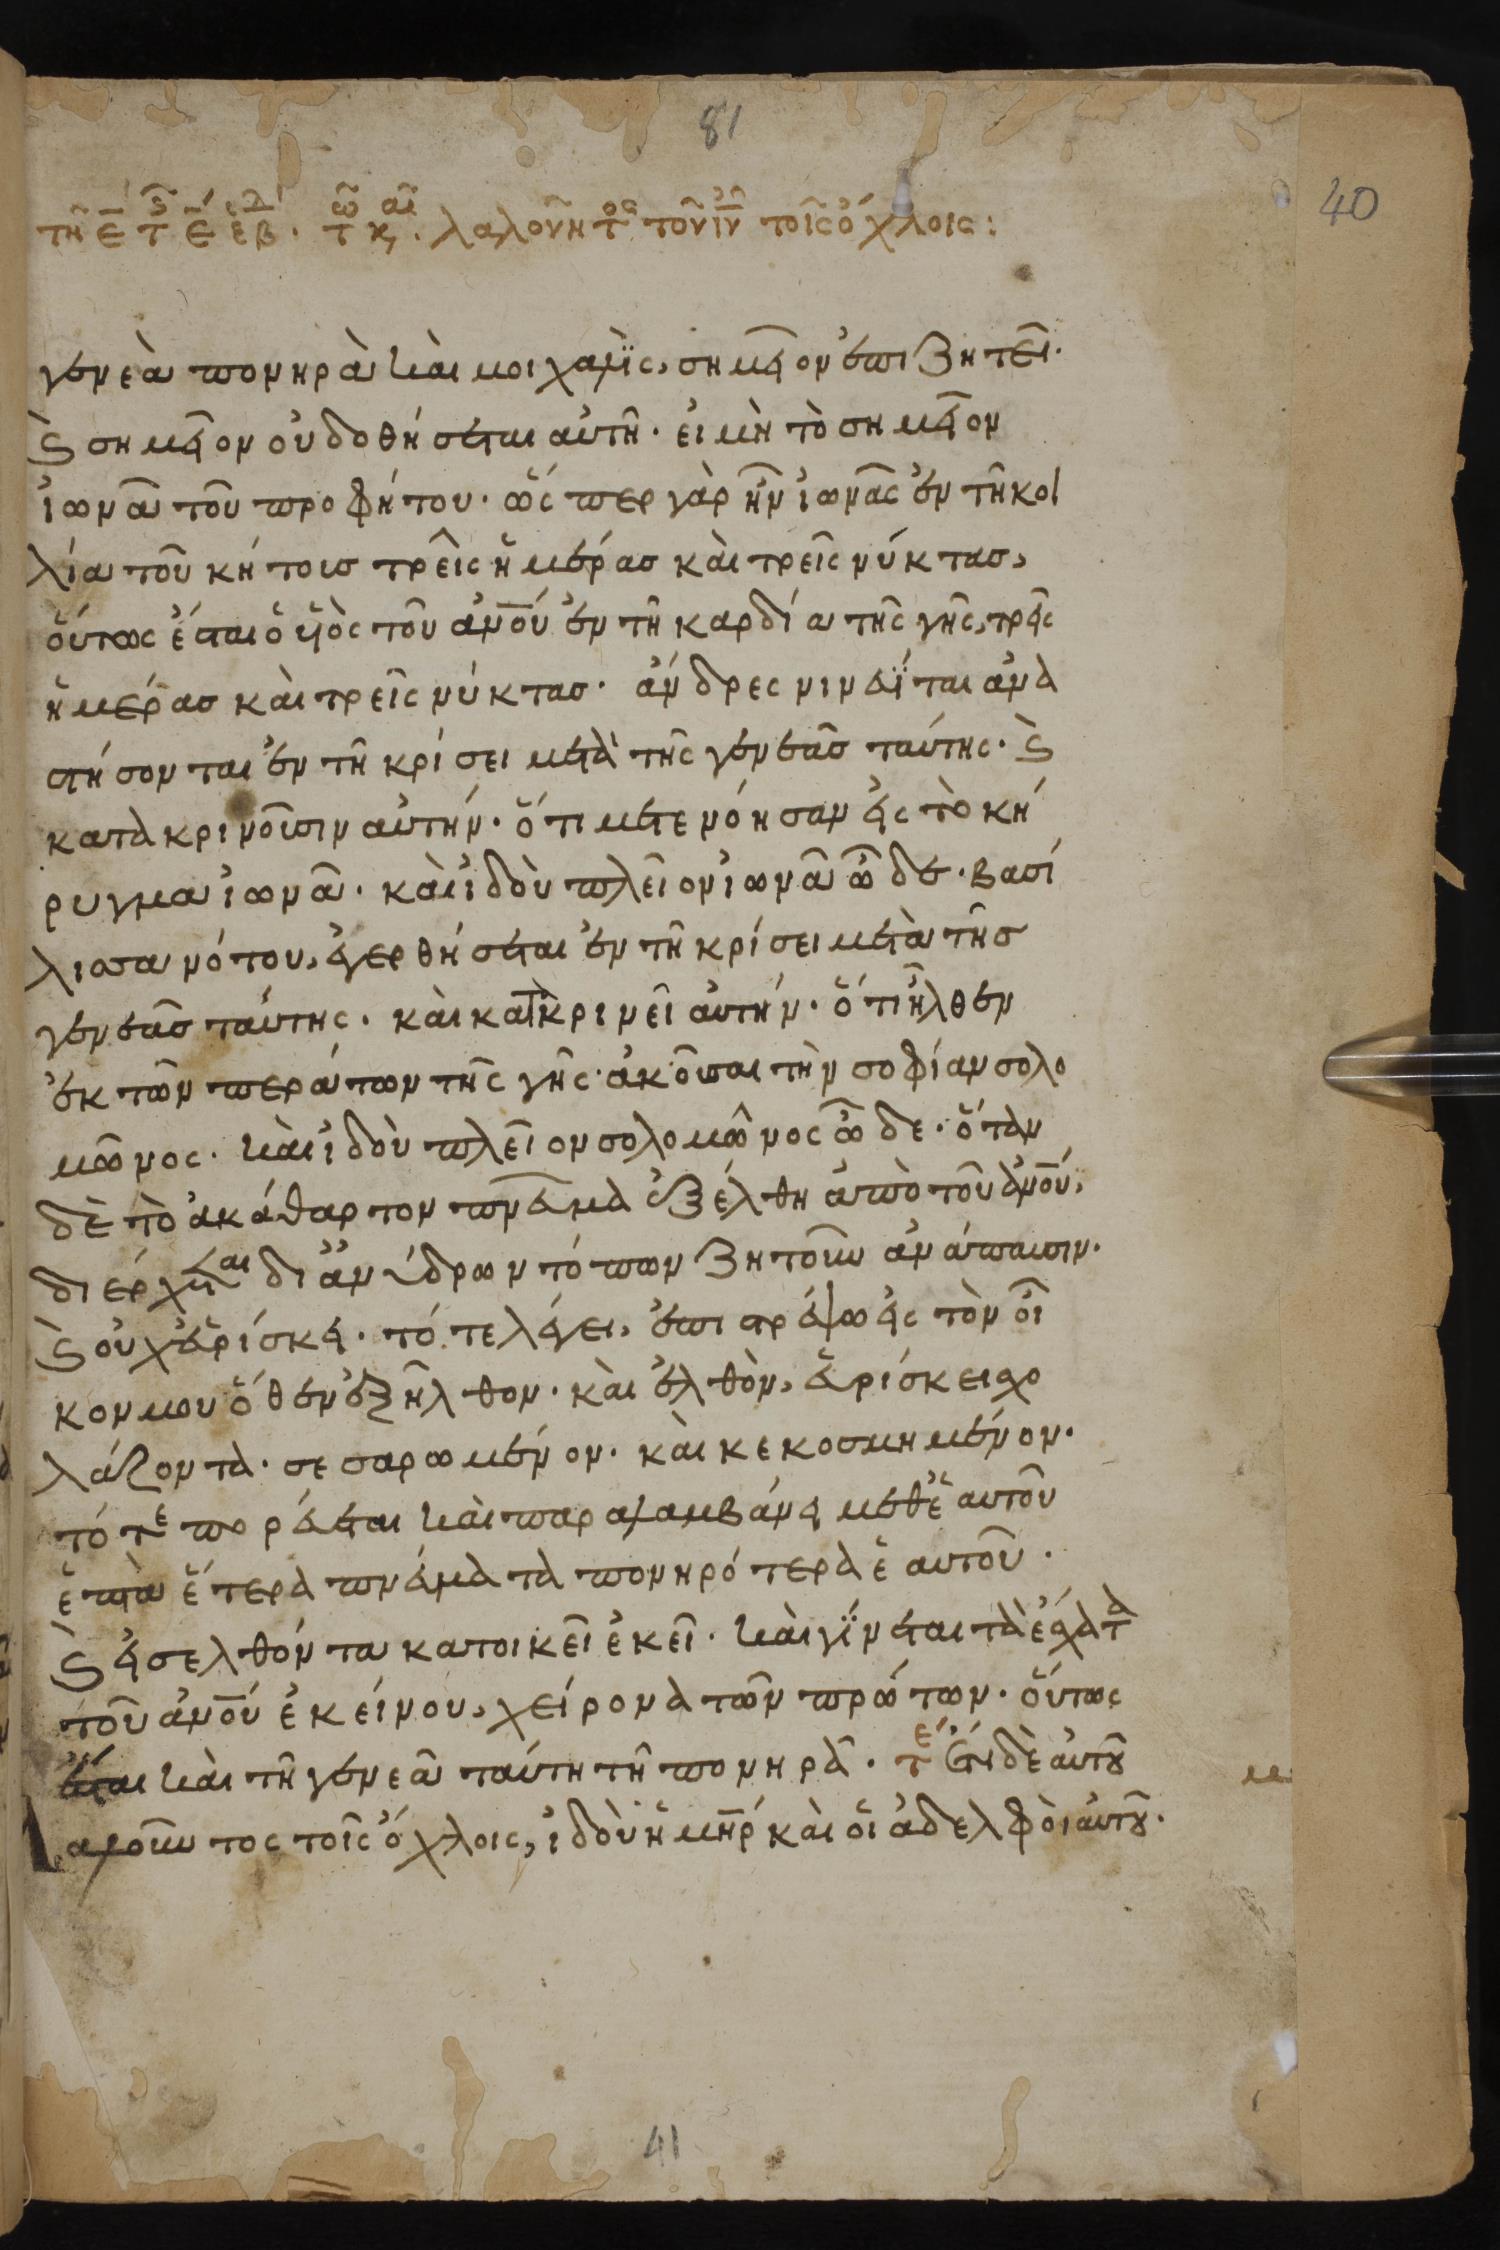 81
40
τῇ ε̅ τ ε̅ ἑβ. τ κ. λαλοῦντος τοῦ ιυ τοῖς ὄχλοις:
γενεὰ πονηρὰ καὶ μοιχαλὶς, σημεῖον ἐπιζητεῖ.
ϗ σημεῖον οὐ δοθήσεται αὐτῆ. εἰ μὴ τὸ σημεῖον
ἰωνᾶ τοῦ προφήτου. ὥς περ γὰρ ἦν ἰωνᾶς ἐν τῆ κοι
λία τοῦ κήτους τρεῖς ἡμέρας καὶ τρεῖς νύκτας,
οὕτως ἔσται ὁ υἱὸς τοῦ ἀν̅ου ἐν τῆ καρδία τῆς γῆς, τρεῖς
ἡμέρας καὶ τρεῖς νύκτας. ἄνδρες νινευῖται ἀνα
στήσονται ἐν τῆ κρίσει μετὰ τῆς γενεᾶς ταύτης. ϗ
κατακρινοῦσιν αὐτήν. ὅτι μετενόησαν εἰς τὸ κή
ρυγμα ἰωνᾶ. καὶ ἰδοὺ πλεῖον ἰωνᾶ ὧδε. βασί
λισσα νότου, ἐγερθήσεται ἐν τῆ κρίσει μετὰ τῆς
γενεᾶς ταύτης. καὶ κατακρινεῖ αὐτήν. ὅτι ἦλθεν
ἐκ τῶν περάτων τῆς γῆς ἀκοῦσαι τὴν σοφίαν σολο
μῶνος. καὶ ἰδοὺ πλεῖον σολομῶνος ὧδε. ὅταν
δὲ τὸ ἀκάθαρτον πν̅εύμα ἐξέλθη ἀπὸ τοῦ ἀν̅ου,
διέρχεται δι ἀνύδρων τόπων ζητοῦν ἀνάπαυσιν.
ϗ οὐχ εὑρίσκει. τότε λέγει, ἐπιστρέψω εἰς τὸν οἶ
κον μου ὅθεν ἐξῆλθον. καὶ ἐλθὸν, εὑρίσκει σχο
λάζοντα. σεσαρωμένον. καὶ κεκοσμημένον.
τότε πορεύεται καὶ παραλαμβάνει μεθ ἑαυτοῦ
ἑπτὰ ἕτερα πνεύματα πονηρότερα ἑαυτοῦ.
ϗ εἰσελθόντα κατοικεῖ ἐκεῖ. καὶ γίνεται τὰ ἔσχατα
τοῦ ἀν̅ου ἐκείνου, χείρονα τῶν πρώτων. οὕτως
ἔσται καὶ τῆ γενεᾶ ταύτη τῆ πονηρᾶ. τε Ἔτι δὲ αὐτοῦ
Λαλοῦντος τοῖς ὄχλοις, ἰδοὺ ἡ μη̅ρ καὶ οἱ ἀδελφοὶ αὐτοῦ.
41